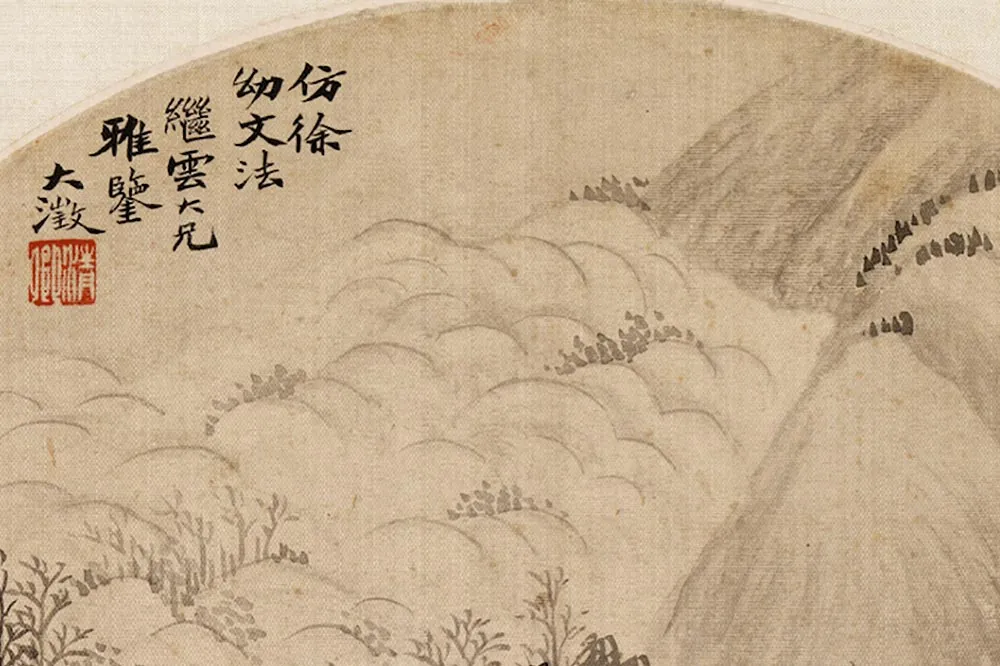 仿徐
幼文法
繼雲大兄
雅鑒
大澂
清卿